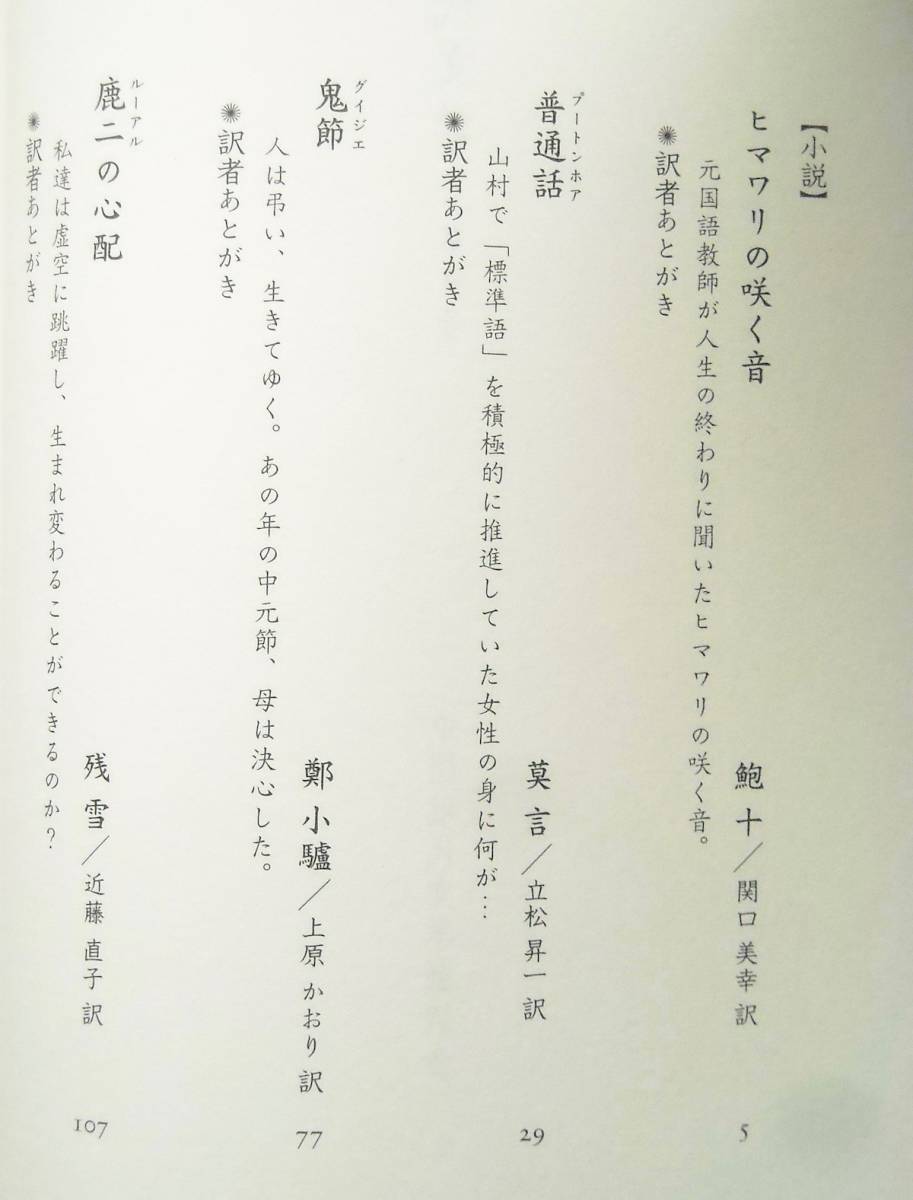 【小説】
ヒマワリの咲く音
鮑十／関口 美幸 訳
5
元国語教師が人生の終わりに聞いたヒマワリの咲く音。
訳者あとがき
プートンホア
普通話
莫言／立松 昇一 訳
29
山村で「標準語」を積極的に推進していた女性の身に何が…
訳者あとがき
グイジエ
鬼節
鄭小驢／上原 かおり 訳
77
人は弔い、生きてゆく。あの年の中元節、母は決心した。
訳者あとがき
ルーアル
鹿二の心配
残雪／近藤 直子 訳
107
私達は虚空に跳躍し、生まれ変わることができるのか？
訳者あとがき